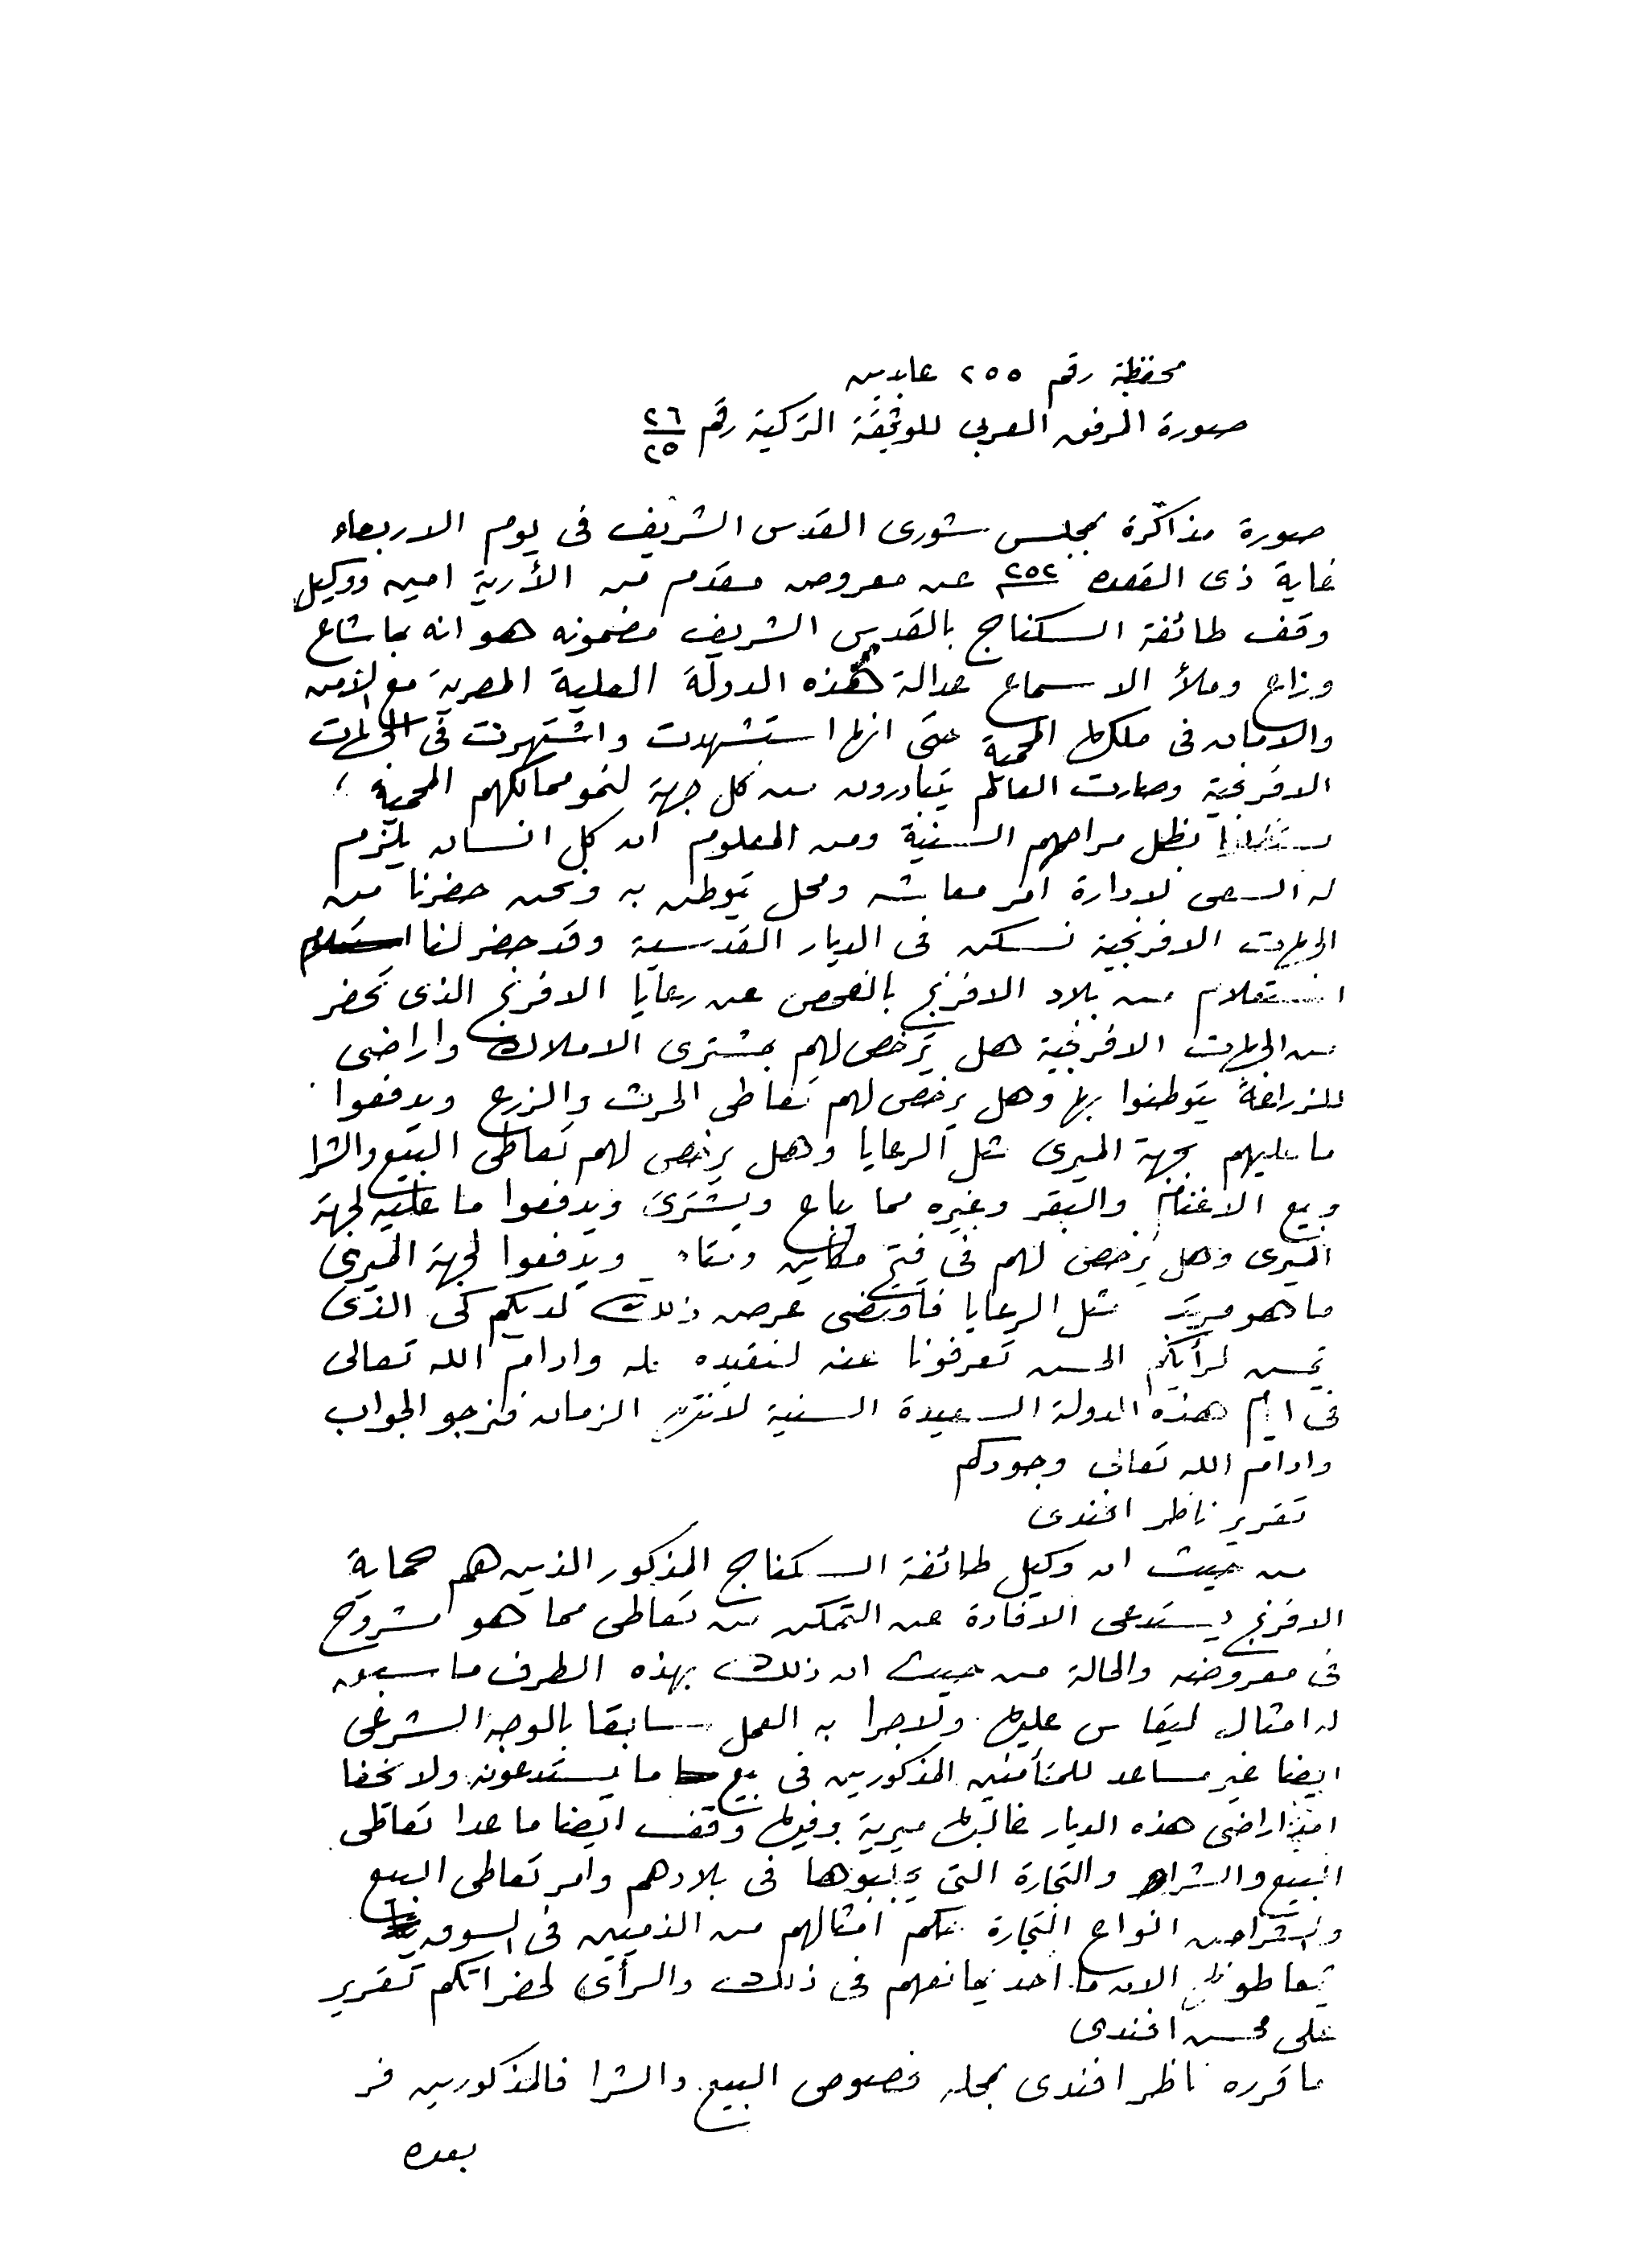 محفظة رقم ٢٥٥ عابدين
صورة المرفق العربى للوثيقة التركية رقم ٢٦/٢٥
صورة مذاكرة بمجلس شورى القدس الشريف فى يوم الاربعاء
غاية ذى القعدة ٢٥٢ عن معروض مقدم من امين ووكيل
وقف طائفة السكناج بالقدس الشريف مضمونه هو انه بما شاع
وزاع وملأ الاسماع عدالة هذه الدولة العلية المصرية مع الامن
والامان فى ملكها المحمية حتى انها استشهدت واشتهرت فى الجهات
الافرنجية وصارت العالم يتبادرون من كل جهة لنحو ممالكهم المحمية
بظل مراحمهم السنية ومن المعلوم ان كل انسان يلزم
له السعى لادارة امر معاشه ومحل يتوطن به ونحن حضرنا من
الجهات الافرنجية نسكن فى الديار القدسية وقد حضر لنا
استعلام من بلاد الافرنج بالفحص عن رعايا الافرنج الذى تحضر
من الجهات الافرنجية هل يرخص لهم بمشترى الاملاك واراضى
للزراعة يتوطنوا بها وهل يرخص لهم تعاطى الحرث والزرع ويدفعوا
ما عليهم بجهة الميرى مثل الرعايا وهل يرخص لهم تعاطى البيع والشرا
وبيع الاغنام والبقر وغيره مما يباع ويشترى ويدفعوا ما عليه لجهة
الميرى وهل يرخص لهم فى فتح ويدفعوا لجهة الميرى
ما هو مرتب مثل الرعايا فاقتضى عرض ذلك لديكم كى الذى
يحسن لرأيكم الحسن تعرفونا عنه لنفيده له وادام الله تعالى
فى ايام هذه الدولة السعيدة السنية الزمان فنرجو الجواب
وادام الله تعالى وجودكم
تقرير ناظر افندى
من حيث ان وكيل طائفة السكناج المذكور الذين هم حماية
الافرنج يستدعى الافادة عن التمكن من تعاطى مما هو مشروح
فى معروضه والحالة من حيث ان ذلك بهذه الطرف ما سبق
له امثال ليقاس عليها ولا جرا به العمل سابقا بالوجه الشرعى
ايضا غير مساعد للمتأمنين المذكورين فى بيع ما يستدعونه ولا يخفا
اراضى هذه الديار غالبها ميرية وفيها وقف ايضا ما عدا تعاطى
البيع والشرا والتجارة التى يجلبوها فى بلادهم وامر تعاطى البيع
والشرا من انواع التجارة امثالهم من الذميين فى السوق
يتعاطوها الان ما احد يمانعهم فى ذلك والرأى لحضراتكم تقرير
على محسن افندى
ما قرره ناظر افندى بمحله خصوص البيع والشرا فالمذكورين
بعده